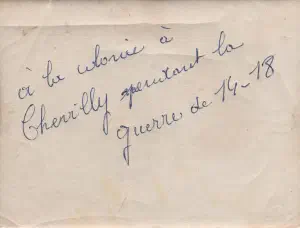 à la colonie à
Chevilly pendant la
guerre de 14-18